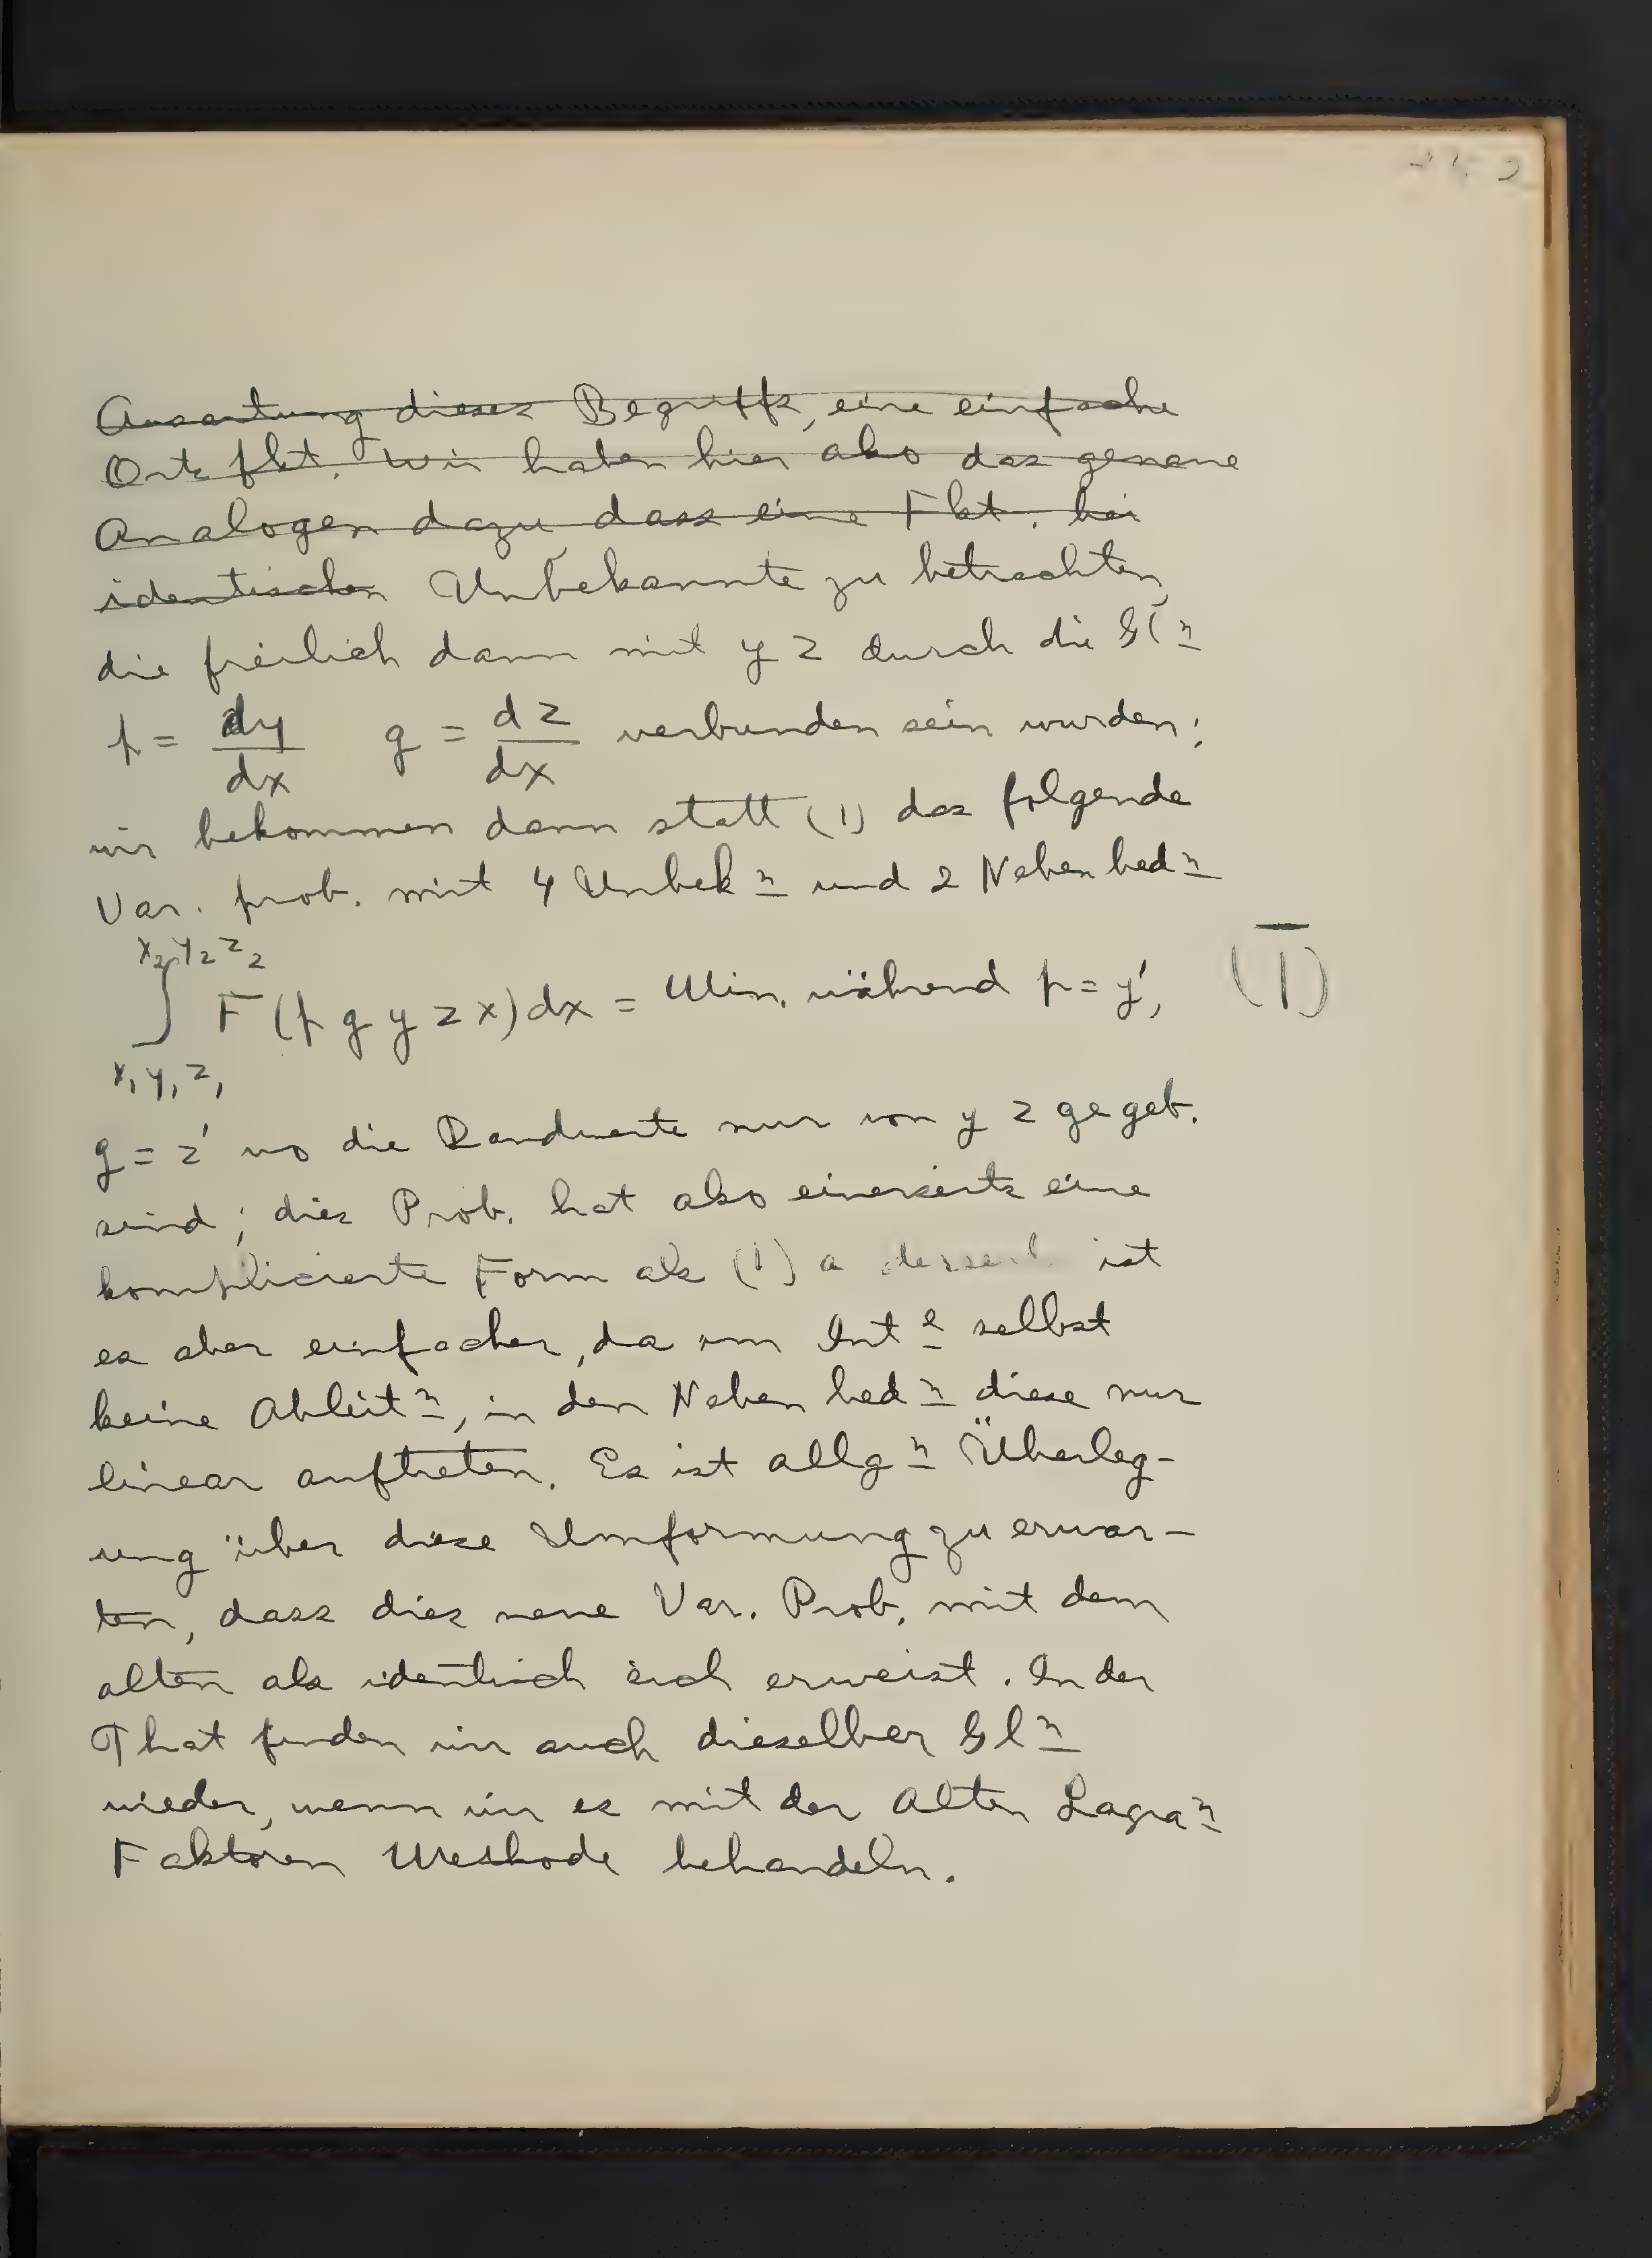 Ausartung dieses Begriffs, eine einfache
Orts fkt. Wir haben hier also das genaue
Analogen dazu, dass eine Fkt. bei
identischen Unbekannte zu betrachten,
die freilich dann mit y z durch die Glⁿ
p = dy/dx q = dz/dx verbunden sein wurden;
wir bekommen dann statt (1) das folgende
Var. prob. mit 4 Unbekⁿ und 2 Nebenbedⁿ
x₂ y₂ z₂
∫ F (p q y z x) dx = Min. während p = y', (I)
x₁ y₁ z₁
q = z' wo die Randwerte nur von y z gegeb.
sind; dies Prob. hat also einerseits eine
komplicierte Form als (1) a ist
es aber einfacher, da im Intˡ selbst
keine Ableitⁿ, in den Nebenbedⁿ diese nur
linear auftreten. Es ist allgⁿ Überleg-
ung über diese Umformung zu erwar-
ten, dass dies neue Var. Prob. mit dem
alten als identisch sich erweist. In der
That finden wir auch dieselben Glⁿ
wieder, wenn wir es mit der alten Lagraⁿ
Faktoren Methode behandeln.